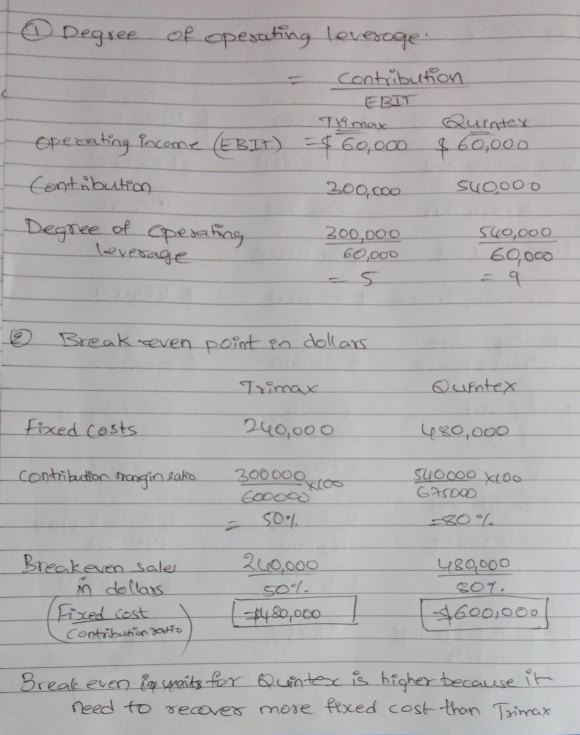 ① Degree of operating leverage.
= Contribution
EBIT
Trimax Quintex
Operating Income (EBIT) = $ 60,000 $ 60,000
Contribution 300,000 540,000
Degree of Operating 300,000 540,000
leverage 60,000 60,000
= 5 = 9
② Break-even point in dollars
Trimax Quintex
Fixed Costs 240,000 480,000
Contribution margin ratio 300000 x100 540000 x100
600000 675000
= 50% =80%
Breakeven sales 240,000 480,000
in dollars 50% 80%
(Fixed cost =$480,000 =$600,000
Contribution ratio)
Break even for Quintex is higher because it
need to recover more fixed cost than Trimax